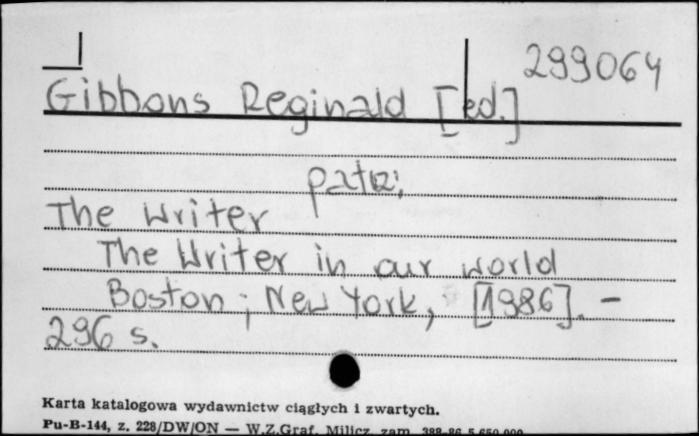 299064
Gibbons Reginald [ed.]
patrz:
The Writer
The Writer in our world
Boston; New York, [1986]. -
296 s.
Karta katalogowa wydawnictw ciągłych i zwartych.
Pu-B-144, z. 228/DW/ON — W.Z.Graf. Milicz, zam. 388-86 5.650.000